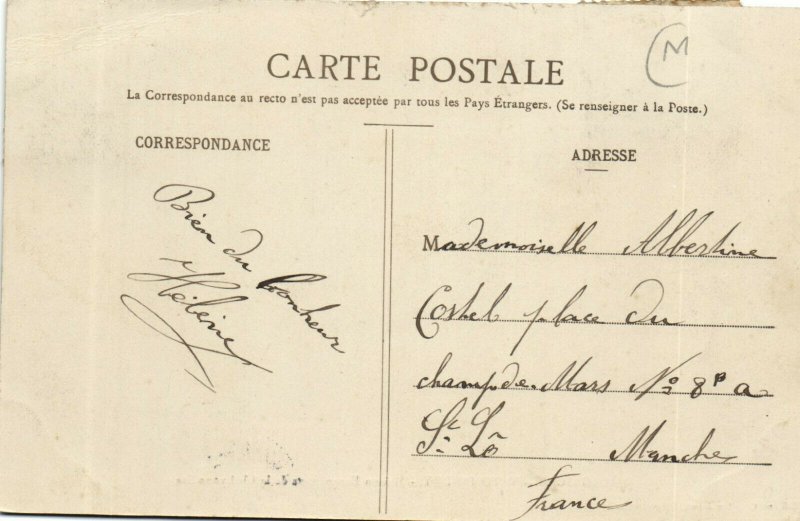 M
CARTE POSTALE
La Correspondance au recto n'est pas acceptée par tous les Pays Étrangers. (Se renseigner à la Poste.)
CORRESPONDANCE
Bien du bonheur
Hélène
ADRESSE
Mademoiselle Albertine
Costel place du
champ de Mars No 8 B a
St Lô Manche
France